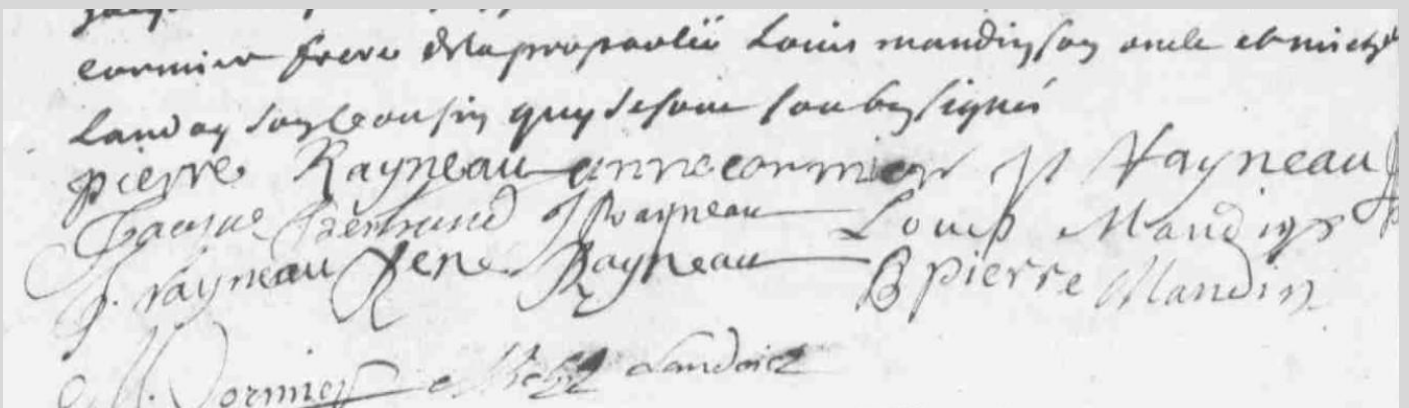 cormier frere de la proparlée Louis mandin son oncle et michel
Landoy son cousin quy se sont soubsignés
pierre Rayneau anne cormier P Rayneau
Jacque Bertrand J Rayneau Louis Mandin
J. rayneau Rene Rayneau B pierre Mandin
M. Cormier Michel Landois